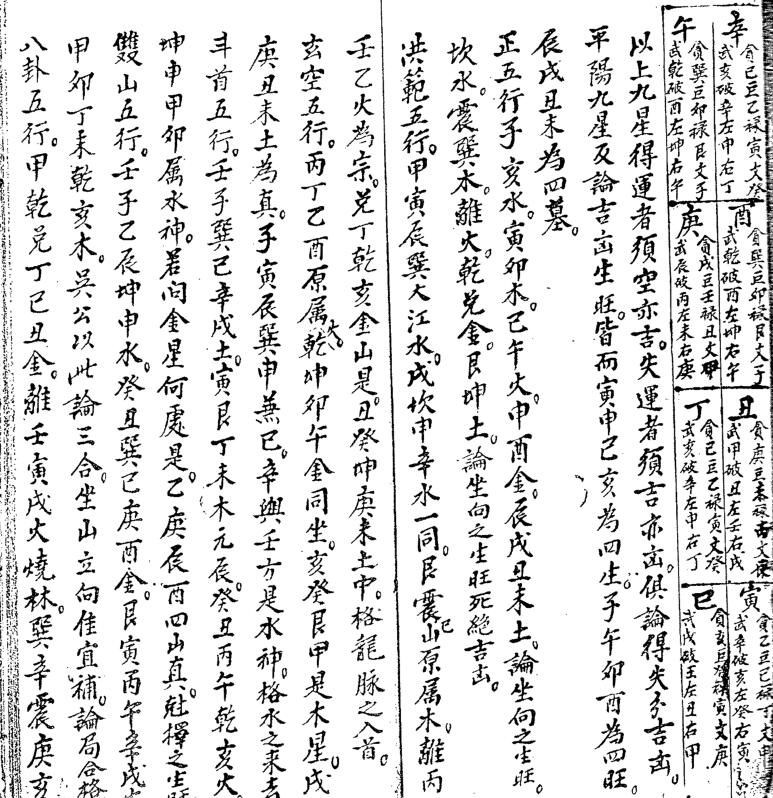 辛 貪巳巨乙祿寅文癸
武亥破辛左申右丁
午 貪巽巨卯祿艮文子
武乾破酉左坤右午
酉 貪巽巨卯祿艮文子
武乾破酉左坤右午
庚 貪戌巨壬祿丑文甲
武辰破丙左未右庚
丑 貪庚巨未祿 文
武甲破丑左壬右戌
丁 貪巳巨乙祿寅文癸
武亥破辛左申右丁
寅 貪乙巨巳祿丁文申
武辛破亥左癸右寅
巳 貪亥巨 祿寅文庚
武戌破壬左丑右甲
以上九星得運者須空亦吉。失運者須吉亦凶。俱論得失分吉凶。
平陽九星反論吉凶生旺。皆而寅申巳亥為四生。子午卯酉為四旺。
辰戌丑未為四墓。
正五行子亥水。寅卯木。巳午火。申酉金。辰戌丑未土。論坐向之生旺。
坎水。震巽木。離火。乾兌金。艮坤土。論坐向之生旺死絕吉凶。
洪範五行。甲寅辰巽大江水。戌坎申辛水一同。艮震山巳原属木。離丙
壬乙火為宗。兌丁乾亥金山是。丑癸坤庚未土中。格龍脉之入首。
玄空五行。丙丁乙酉原属火。乾坤卯午金同坐。亥癸艮甲是木星。戌
庚丑未土為真。子寅辰巽申兼巳。辛與壬方是水神。格水之來去
斗首五行。壬子巽巳辛戌土。寅艮丁未木元辰。癸丑丙午乾亥火。
坤申甲卯属水神。若问金星何處是。乙庚辰酉四山真。尅擇之生旺
雙山五行。壬子乙辰坤申水。癸丑巽巳庚酉金。艮寅丙午辛戌
甲卯丁未乾亥木。吳公以此論三合。坐山立向佳宜補。論局合格
八卦五行。甲乾兌丁巳丑金。離壬寅戌火燒林。巽辛震庚亥